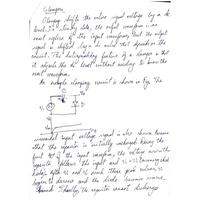 Clampers
Clamper shifts the entire signal voltage by a dc
level. In steady state, the output waveform is an
exact replica of the input waveform, but the output
signal is shifted by a dc value that depends on the
circuit. The distinguishing feature of a clamper is that
it adjusts the dc level without needing to know the
exact waveform.
An example clamping circuit is shown in Fig. The
C
D
sinusoidal input voltage signal is also shown. Assume
that the capacitor is initially uncharged. During the
first 90° of the input waveform, the voltage across the
capacitor follows the input and
diode. After and reach their peak values,
begins to decrease and the diode becomes reverse
biased. Ideally, the capacitor cannot discharge